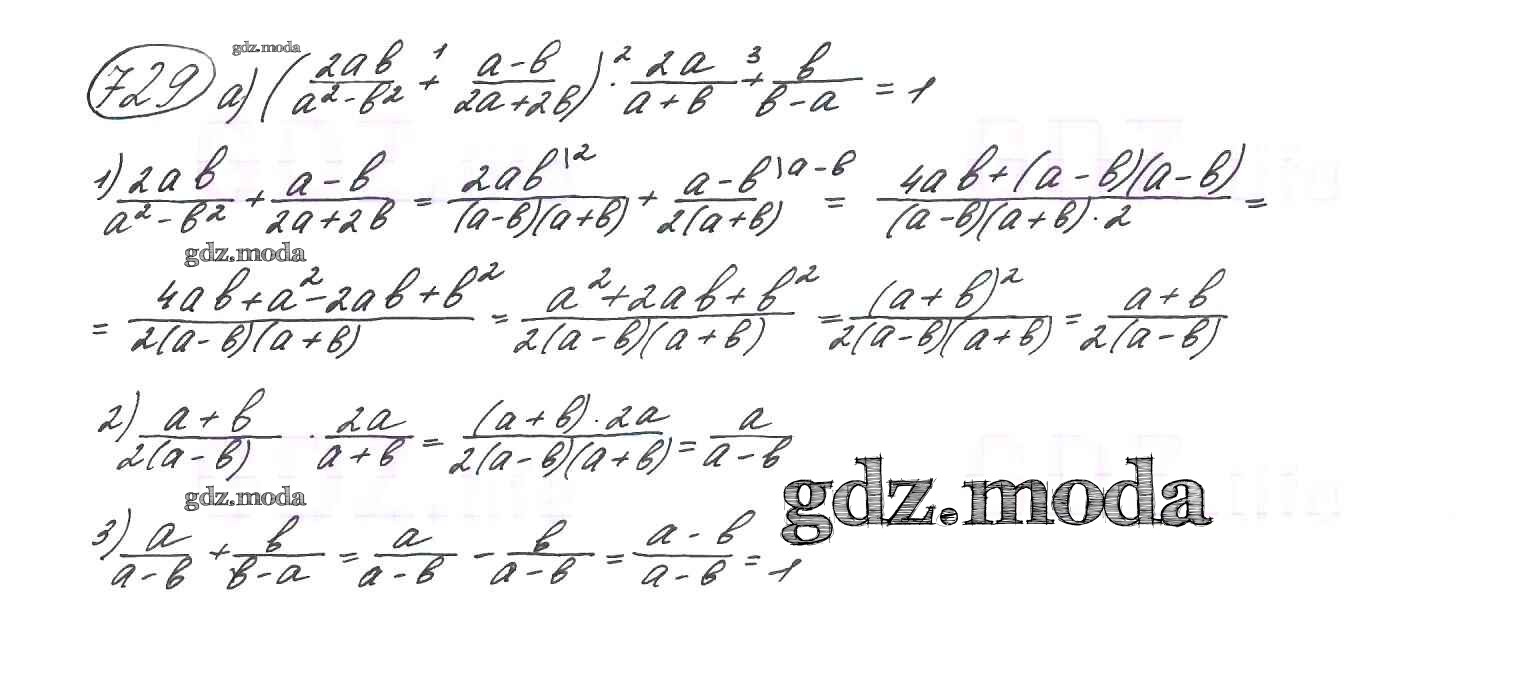 gdz.moda
729 а) (2ab/(a²-b²) +¹ (a-b)/(2a+2b)) ·² 2a/(a+b) +³ b/(b-a) = 1
1) 2ab/(a²-b²) + (a-b)/(2a+2b) = 2ab\2/((a-b)(a+b)) + a-b\a-b/(2(a+b)) = (4ab+(a-b)(a-b))/((a-b)(a+b)·2) =
gdz.moda
= (4ab+a²-2ab+b²)/(2(a-b)(a+b)) = (a²+2ab+b²)/(2(a-b)(a+b)) = (a+b)²/(2(a-b)(a+b)) = (a+b)/(2(a-b))
2) (a+b)/(2(a-b)) · 2a/(a+b) = ((a+b)·2a)/(2(a-b)(a+b)) = a/(a-b)
gdz.moda
gdz.moda
3) a/(a-b) + b/(b-a) = a/(a-b) - b/(a-b) = (a-b)/(a-b) = 1